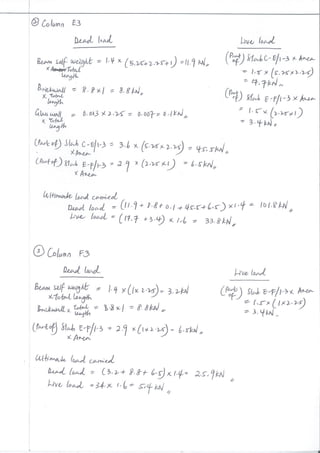 ⑧ Column E3
Dead load
Live load
Beam self weight = 1.4 × (5.25+2.25+1) = 11.9 kN
× Total length
(Part of) Slab C-E/1-3 × Area
= 1.5 × (5.25×2.25)
= 17.7 kN
Brickwall = 8.8 × 1 = 8.8 kN
× Total length
(Part of) Slab E-F/1-3 × Area
= 1.5 × (2.25×1)
= 3.4 kN
Glass wall = 0.03 × 2.25 = 0.007 = 0.1 kN
× Total length
(Part of) Slab C-E/1-3 = 3.6 × (5.25×2.25) = 45.5 kN
× Area
(Part of) Slab E-F/1-3 = 2.9 × (2.25×1) = 6.5 kN
× Area
Ultimate load carried
Dead load = (11.9 + 8.8 + 0.1 + 45.5 + 6.5) × 1.4 = 101.8 kN
Live load = (17.7 + 3.4) × 1.6 = 33.8 kN
⑨ Column F3
Dead load
Live load
Beam self weight = 1.4 × (1×2.25) = 3.2 kN
× Total length
(Part of) Slab E-F/1-3 × Area
= 1.5 × (1×2.25)
= 3.4 kN
Brickwall × Total length = 8.8 × 1 = 8.8 kN
(Part of) Slab E-F/1-3 = 2.9 × (1×2.25) = 6.5 kN
× Area
Ultimate load carried
Dead load = (3.2 + 8.8 + 6.5) × 1.4 = 25.9 kN
Live load = 3.4 × 1.6 = 5.4 kN